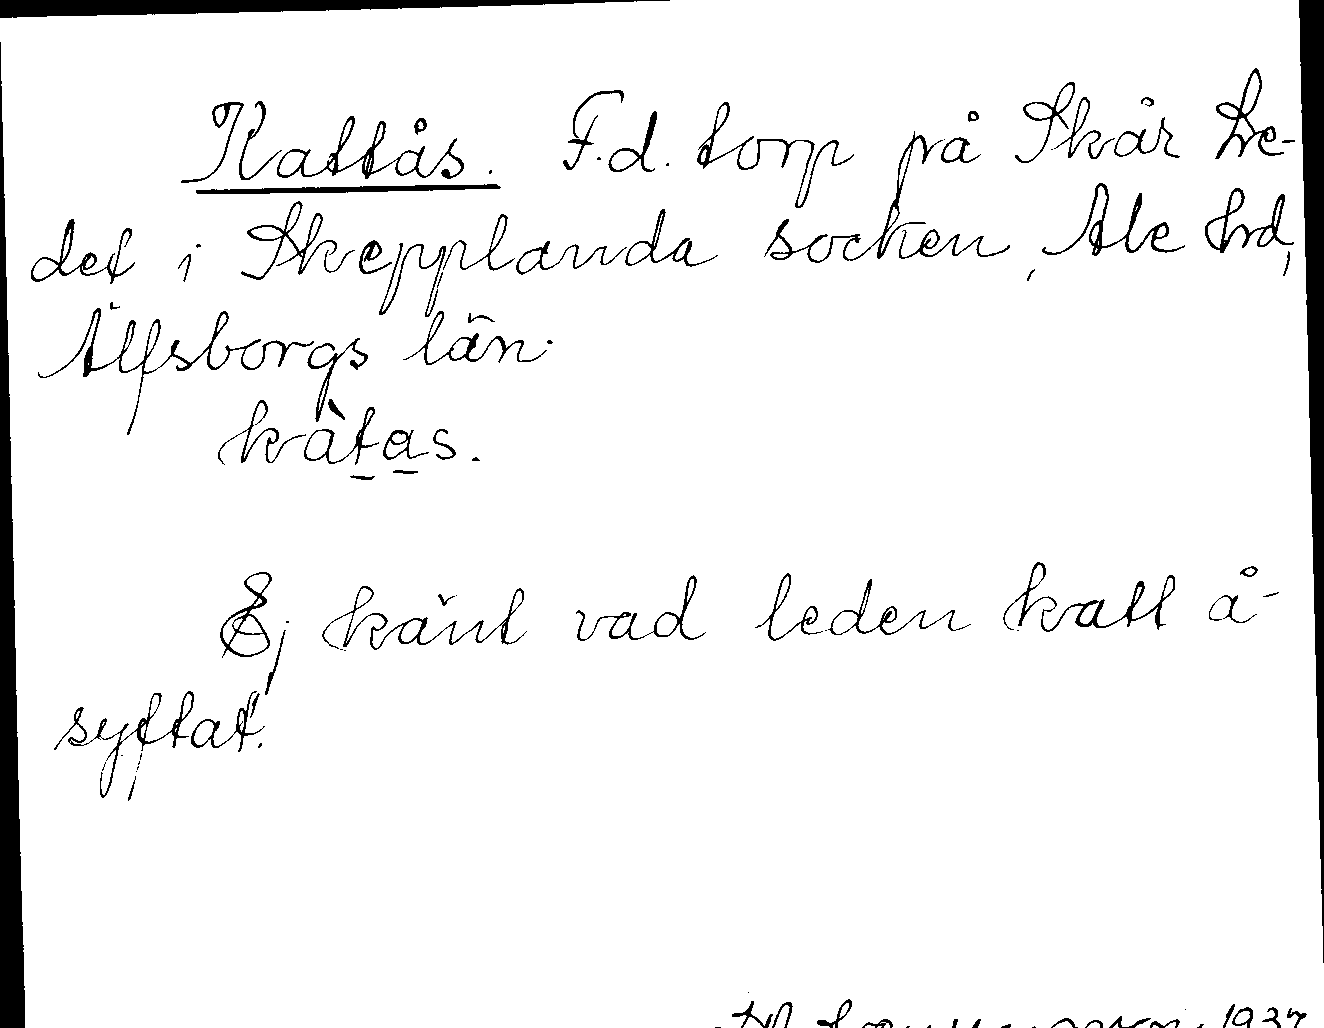 Kattås. F.d. torp på Skår Le-
det i Skepplanda socken, Ale hrd,
Älfsborgs län.
kàtas.
Ej känt vad leden katt å-
syftat.
1937